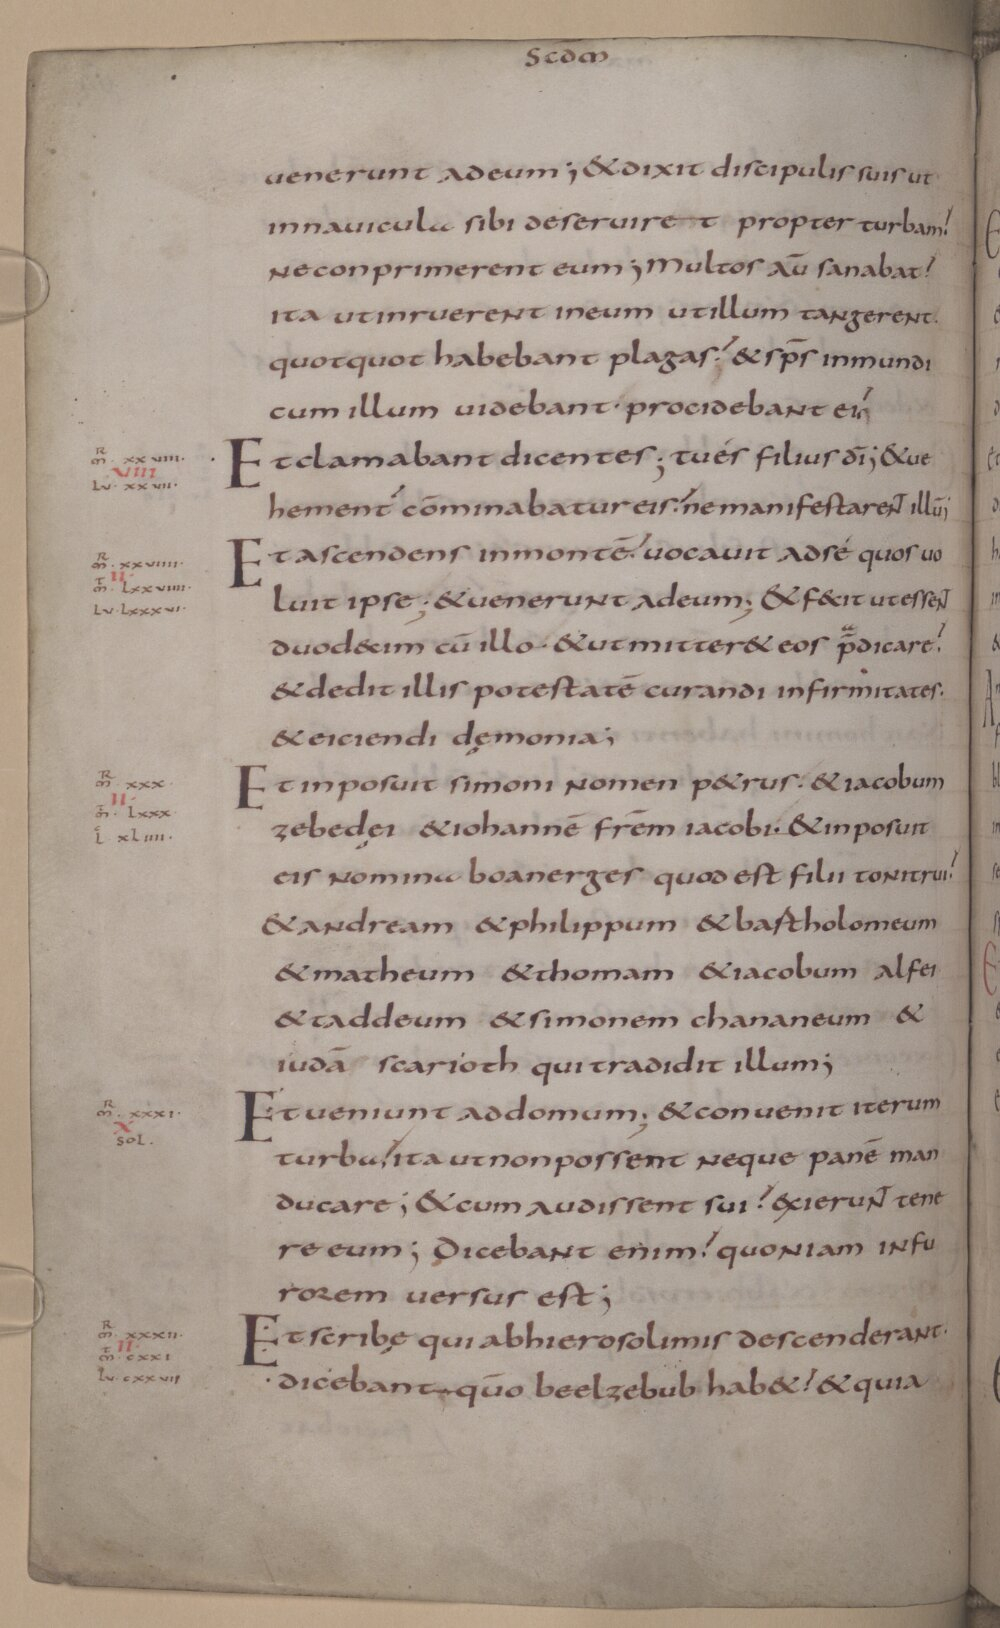 Scdm
uenerunt adeum; &dixit discipulis suis ut
innauicula sibi deseruiret propter turbam!
neconprimerent eum; multos aū sanabat!
ita utinruerent ineum utillum tangerent.
quotquot habebant plagas! & sp̄s inmundi
cum illum uidebant· procidebant ei!
R̄ m· xxviii·
VIII
Lv· xxvii·
Et clamabant dicentes; tués filius dī; &ue
hement̄ cōminabatur eis! ne manifestaren̄t illū;
R̄ m· xxviiii·
II
m̄t· Lxxviiii·
Lv· Lxxxvi·
Et ascendens inmontē! uocauit adsé quos uo
luit ipse; &uenerunt adeum; &fecit utessent
duodecim cū illo· &utmitter& eos p̄dicare!
&dedit illis potestatē curandi infirmitates·
&eiciendi dęmonia;
R̄ m· xxx·
II
m̄t· Lxxx·
L xLiiii·
Et inposuit simoni nomen p&rus· &iacobum
zebedęi &iohannē fr̄em iacobi· &inposuit
eis nomina boanerges quod est filii tonitrui!
&andream &philippum &bartholomeum
&matheum &thomam &iacobum alfei
&taddeum &simonem chananeum &
iudā scarioth quitradidit illum;
R̄ m· xxxi·
X
soL·
Et ueniunt addomum; &conuenit iterum
turba! ita utnonpossent neque panē man
ducare; &cum audissent sui! exierun̄t tene
re eum; Dicebant enim! quoniam infu
rorem uersus est;
R̄ m· xxxii·
II
m̄t· cxxi
Lv· cxxvii
Et scribę qui abhierosolimis descenderant·
dicebant qūo beelzebub hab&! &quia